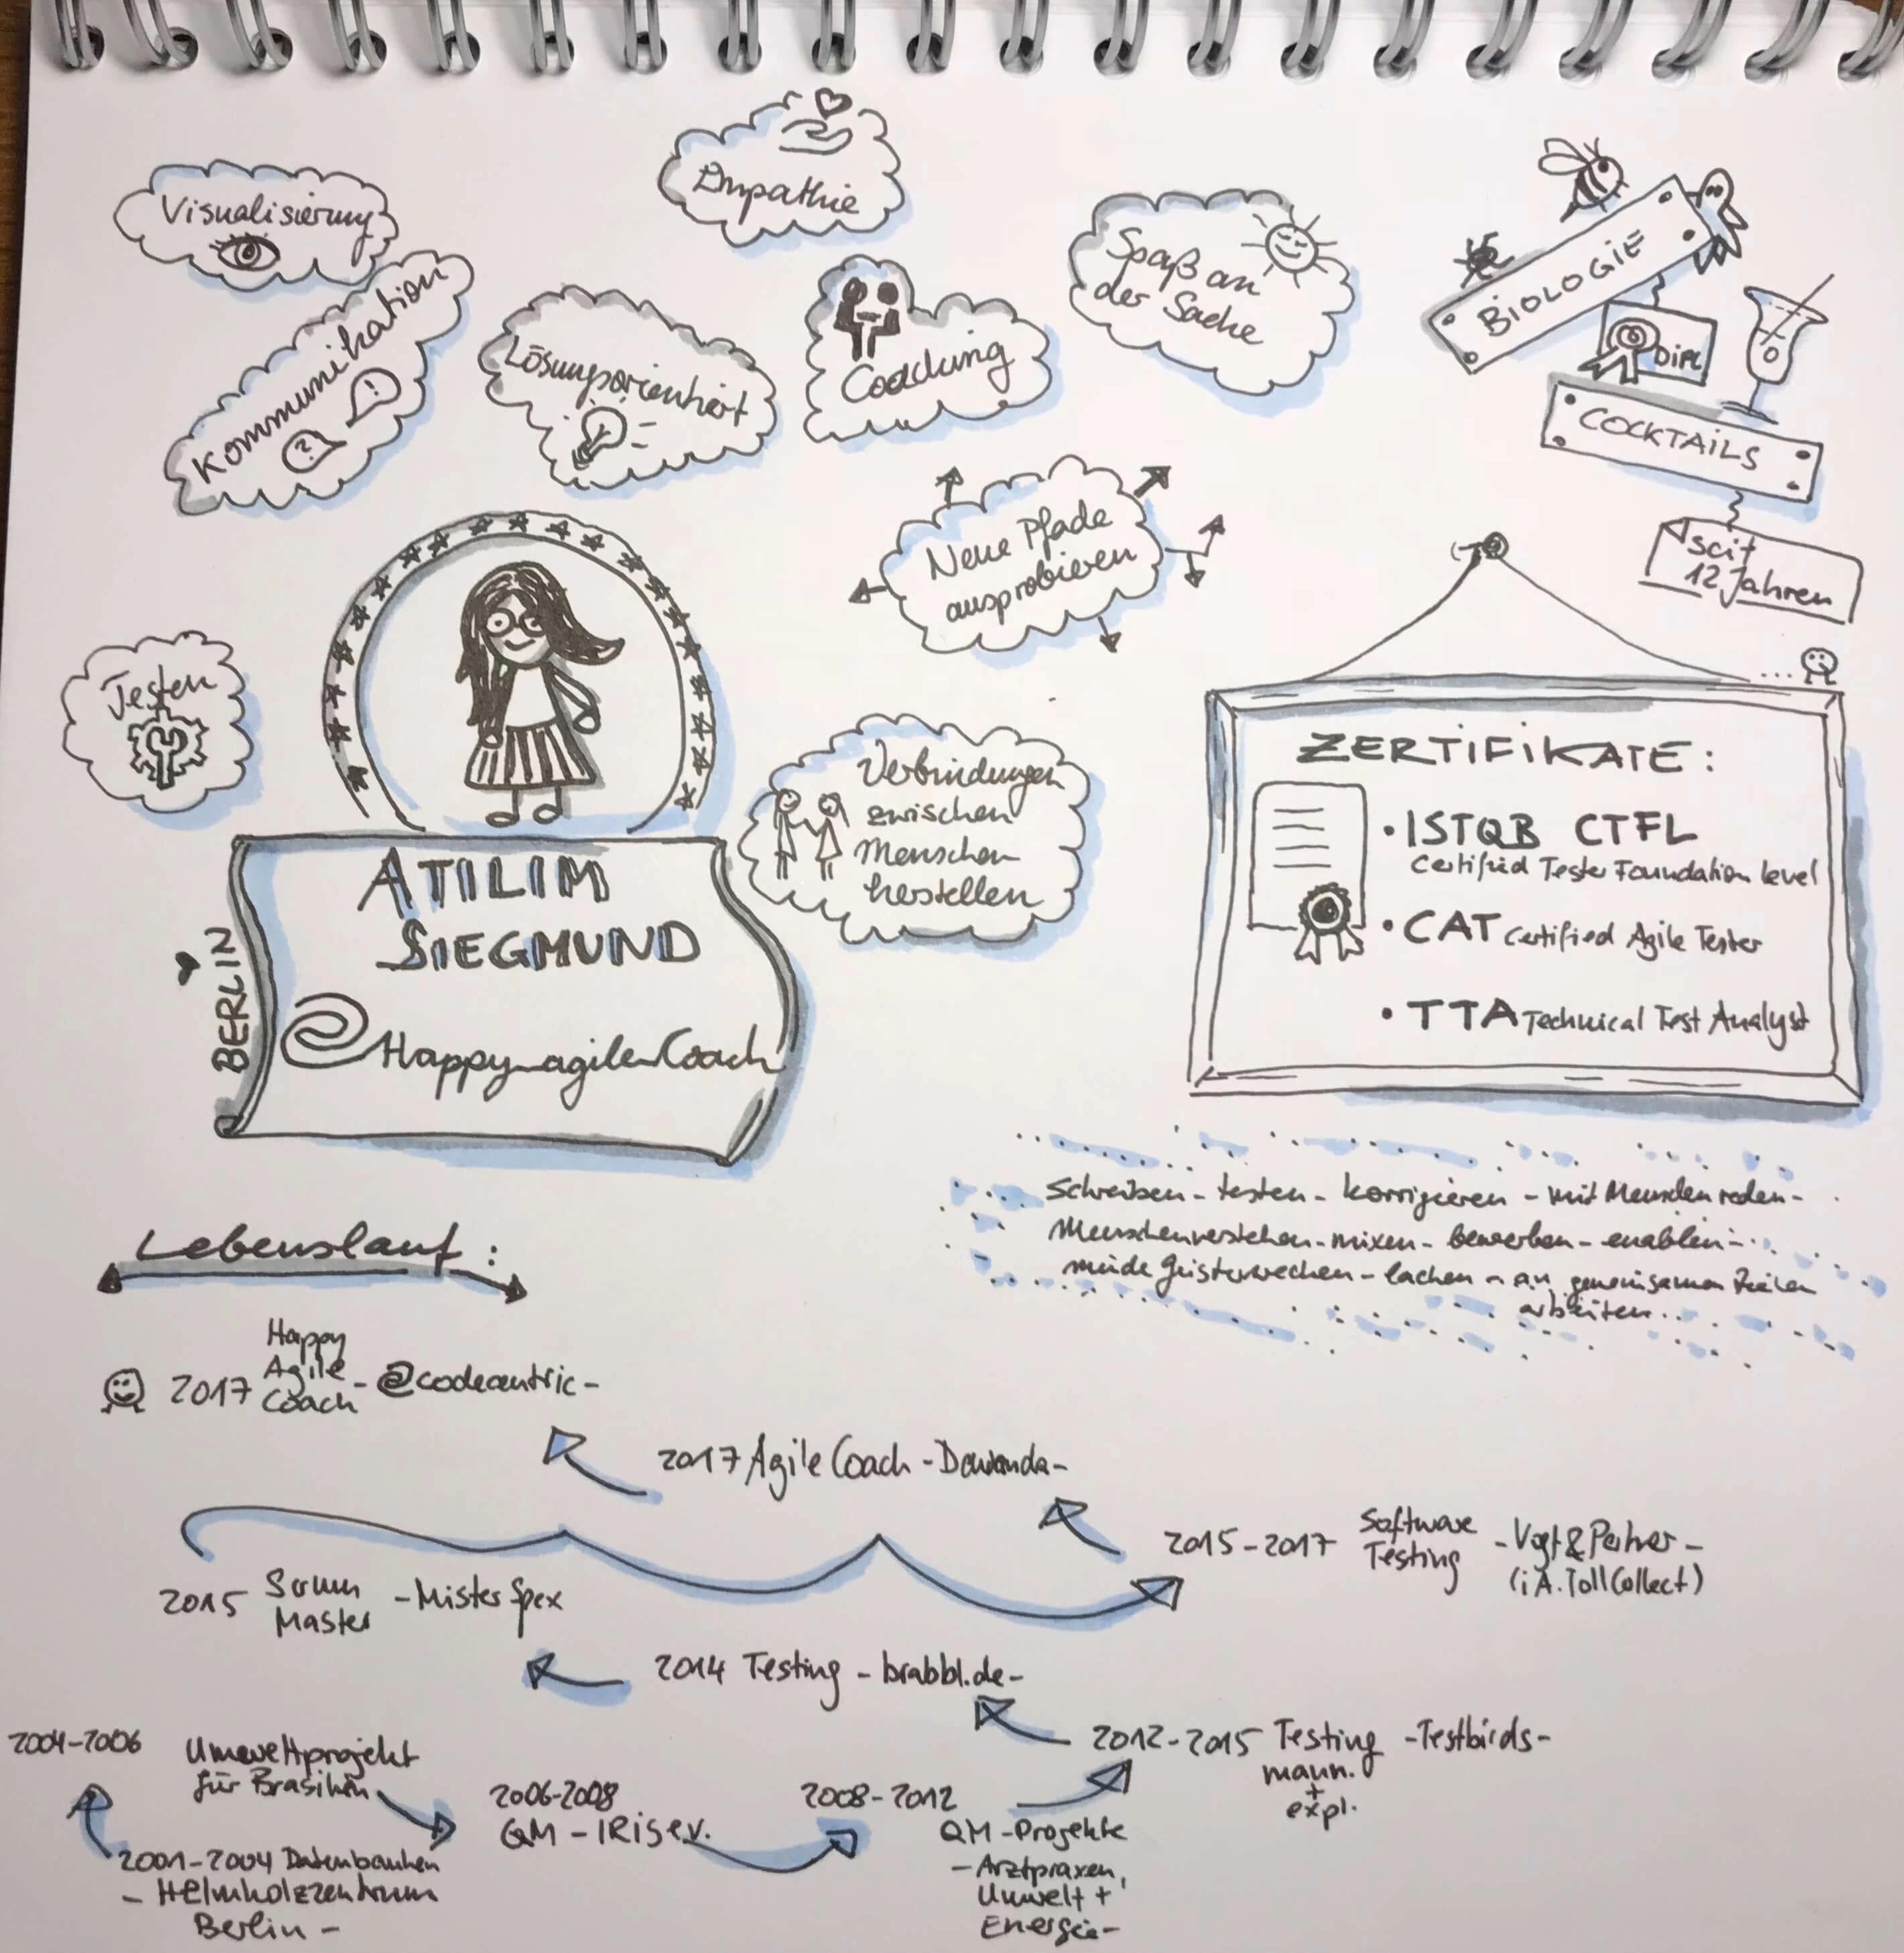 Visualisierung
Kommunikation
?
!
Lösungsorientiert
Empathie
Coaching
Spaß an
der Sache
BIOLOGIE
DIPL
COCKTAILS
seit
12 Jahren
Neue Pfade
ausprobieren
Testen
Verbindungen
zwischen
Menschen
herstellen
ATILIM
SIEGMUND
@Happy_agile_Coach
BERLIN
ZERTIFIKATE:
• ISTQB CTFL
Certified Tester Foundation Level
• CAT Certified Agile Tester
• TTA Technical Test Analyst
Schreiben - testen - korrigieren - mit Menschen reden -
Menschen verstehen - mixen - bewerben - enablen -
müde Geister wecken - lachen - an gemeinsamen Zielen
arbeiten...
Lebenslauf:
2017 Happy
Agile
Coach - @codecentric -
2017 Agile Coach - Dawanda -
2015-2017 Software
Testing - Vogt & Partner -
(i.A. TollCollect)
2015 Scrum
Master - Mister Spex
2014 Testing - brabbl.de -
2012-2015 Testing - Testbirds -
mann.
+
expl.
2004-2006 Umweltprojekt
für Brasilien
2006-2008
QM - IRIS e.V.
2008-2012
QM-Projekte
- Arztpraxen,
Umwelt +
Energie -
2001-2004 Datenbanken
- Helmholzzentrum
Berlin -